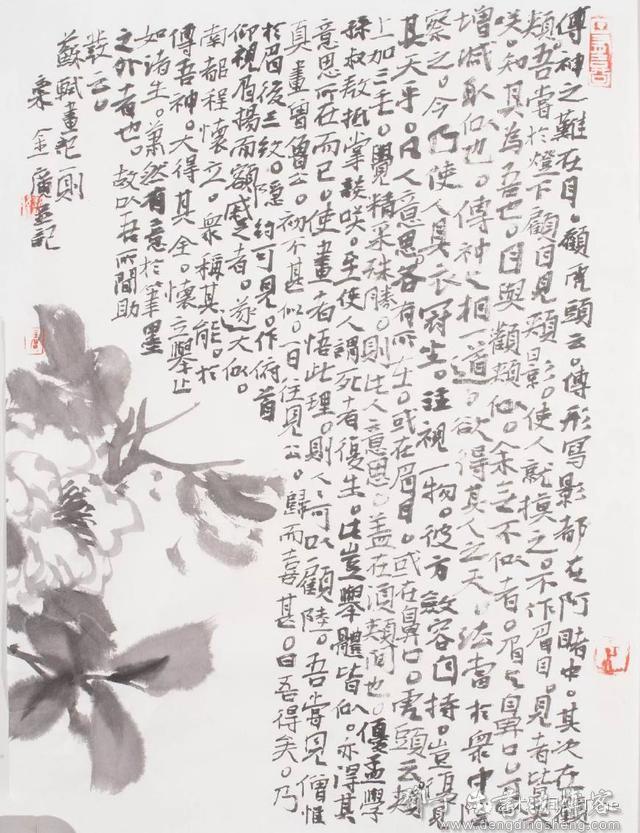 傳神之難在目。顧虎頭云。傳形寫影都在阿睹中。其次在顴
頰。吾嘗於燈下顧自見頰影。使人就摸之。不作眉目。見者皆失
咲。知其為吾也。目與顴頰似。余之不似者。眉與鼻口。可
增減取似也。傳神之相一道。欲得其人之天。法當於衆中陰
察之。今乃使人具衣冠坐。注視一物。彼方斂容自持。豈復見
其天乎。凡人意思各有所在。或在眉目。或在鼻口。虎頭云頰
上加三毛。覺精采殊勝。則此人意思。蓋在須頰間也。優孟學
孫叔敖抵掌談咲。至使人謂死者復生。此豈舉體皆似。亦得其
意思所在而已。使畫者悟此理。則人人可以顧陸。吾嘗見僧惟
真畫曾魯公。初不甚似。一日往見公。歸而喜甚。曰吾得矣。乃
於眉後三紋。隱約可見。作俯首
仰視眉揚而額蹙者。遂大似。
南都程懷立。衆稱其能。於
傳吾神。大得其全。懷立舉止
如諸生。蕭然有意於筆墨
之外者也。故以吾所聞助
發云。
蘇軾畫記一則
金廣記
www.dengdingsheng.com